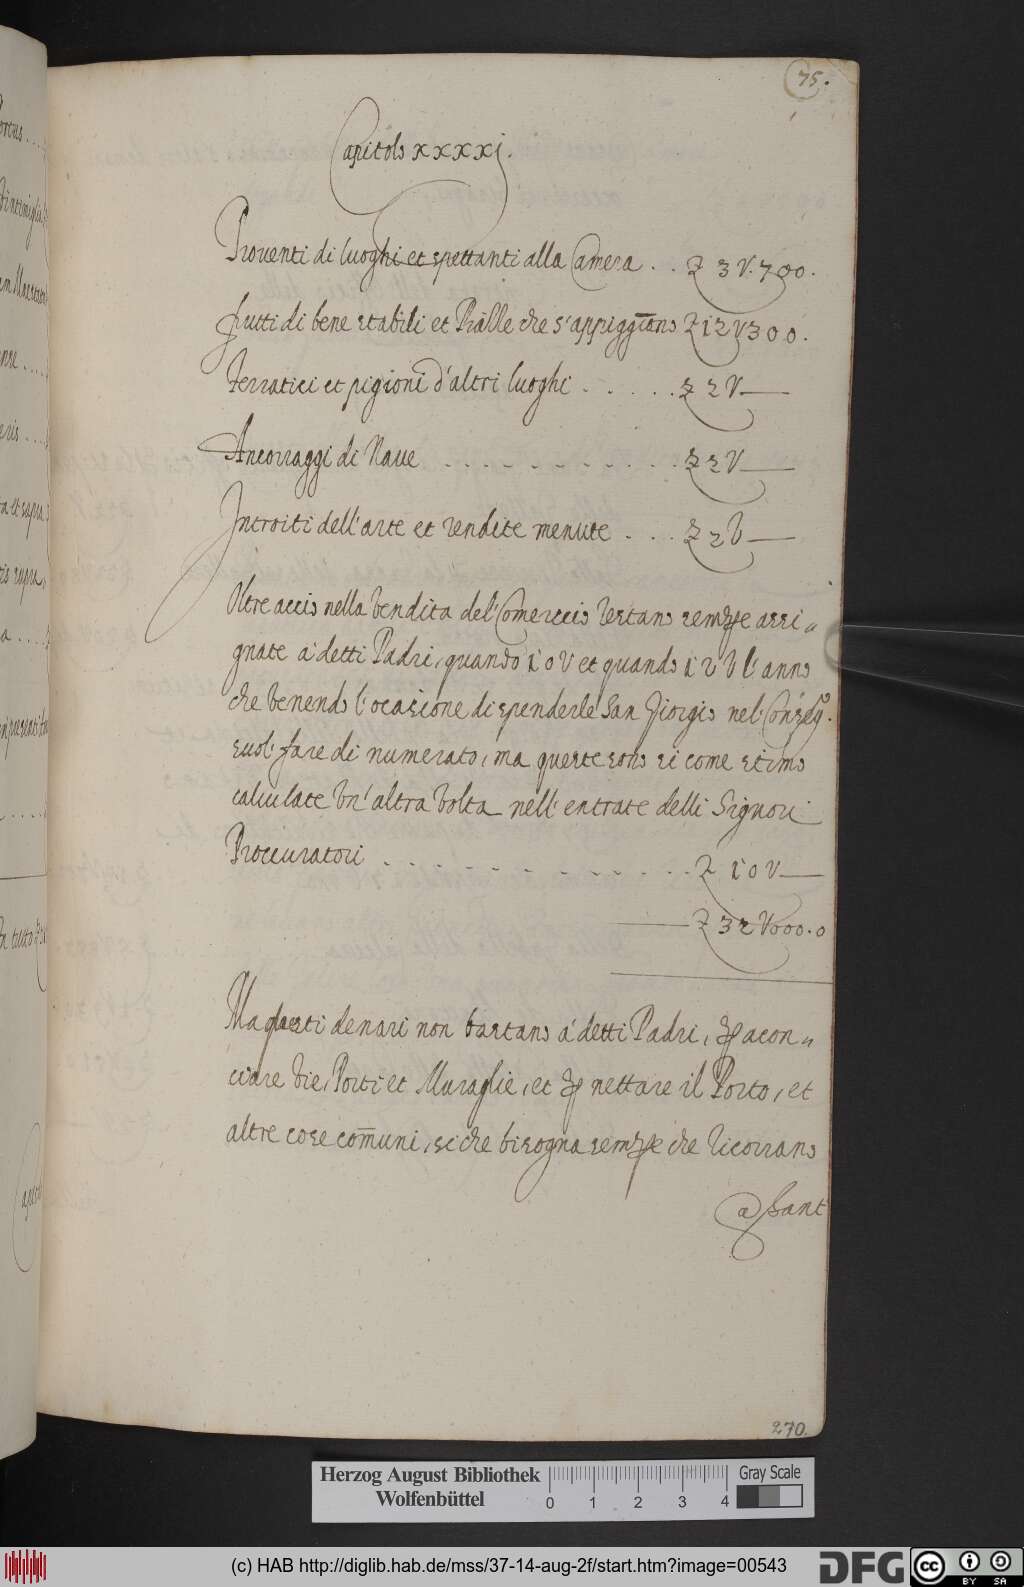 75.
Capitolo xxxxxj.
Proventi di luoghi et spettanti alla Camera . . £ 3V.700.
frutti di bene stabili et Pialle che s'appiggiono £ 12V300.
Terratici et pigioni d'altri luoghi . . . . . £ 2V—
Ancorraggi di Naue . . . . . . . . . . . . £ 2V—
Introiti dell'arte et vendite menute . . . £ 2V—
Oltre accio nella vendita del' Comerccio restano sempre assi„
gnate a' detti Padri, quando 10V et quando 12V l'anno
che venendo l'ocasione di spenderle San Giorgio nel'
suol' fare di numerato, ma queste sono si come stimo
calculate vn' altra volta nell' entrate delli Signori
Proccuratori . . . . . . . . . . . . . £ 10V—
£ 32V000.0
Ma questi denari non bastano a' detti Padri, p acon„
ciare vie, Porti et Muraglie, et p nettare il Porto, et
altre cose com̄uni, si che bisogna sempre che ricorrano
a Sant
270.
Herzog August Bibliothek
Wolfenbüttel
0 1 2 3 4
Gray Scale
(c) HAB http://diglib.hab.de/mss/37-14-aug-2f/start.htm?image=00543
DFG
cc BY SA